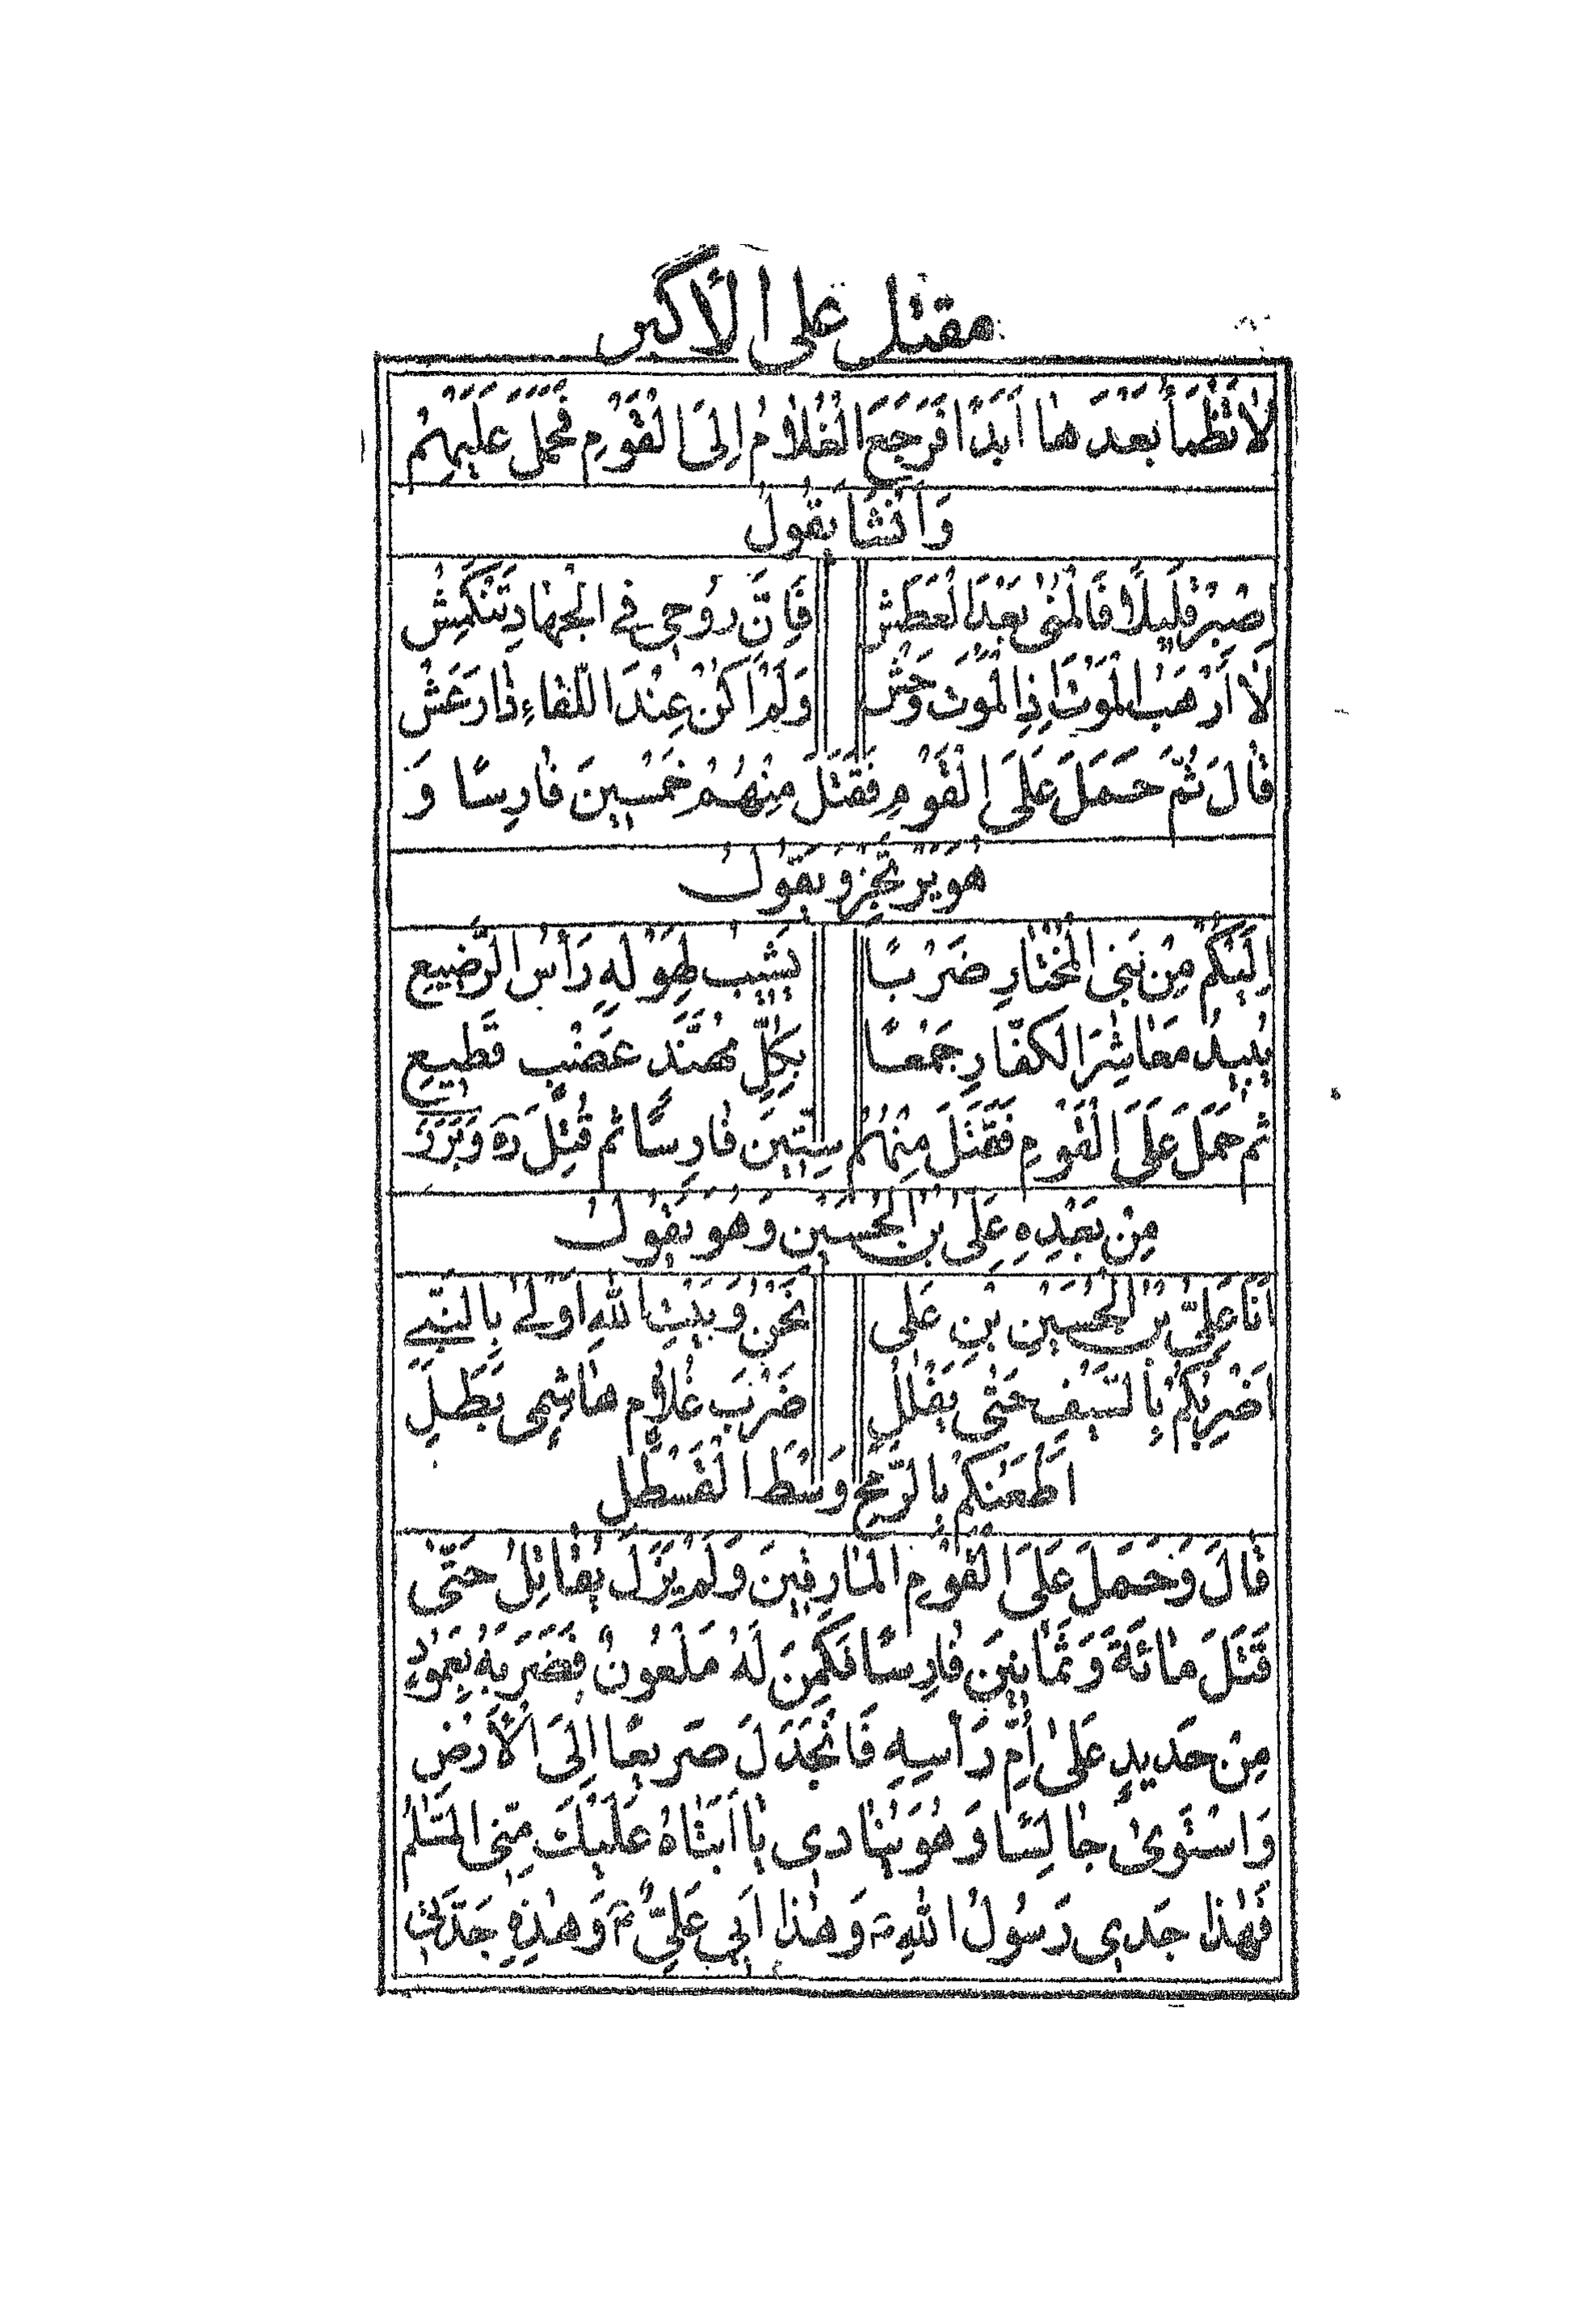 مقتل علی الأکبر
لَا تَظْمَأُ بَعْدَ هٰا أَبَدًا فَرَجَعَ الْغُلَامُ اِلَى الْقَوْمِ فَحَمَلَ عَلَيْهِمْ
وَاَنْشَأَ يَقُولُ
اِصْبِرْ قَلِيلًا فَالْمُنٰى بَعْدَ الْعَطَشِ فَاِنَّ رُوحِي فِي الْجِهٰادِ تَنْكَمِشُ
لَا أَرْهَبُ الْمَوْتَ اِذِ الْمَوْتُ وَحَشَ وَلَمْ اَكُنْ عِنْدَ اللِّقٰاءِ ذٰا رَعَشٍ
قٰالَ ثُمَّ حَمَلَ عَلَى الْقَوْمِ فَقَتَلَ مِنْهُمْ خَمْسِينَ فٰارِسًا وَ
هُوَ يَرْتَجِزُ وَيَقُولُ
اِلَيْكُمْ مِنْ بَنِي الْمُخْتٰارِ ضَرْبًا يَشِيبُ لِهَوْلِهِ رَأْسُ الرَّضِيعِ
يُبِيدُ مَعٰاشِرَ الْكُفّٰارِ جَمْعًا بِكُلِّ مُهَنَّدٍ عَضْبٍ قَطِيعٍ
ثم حَمَلَ عَلَى الْقَوْمِ فَقَتَلَ مِنْهُمْ سِتِّينَ فٰارِسًا ثم قُتِلَ رَه وَبَرَزَ
مِنْ بَعْدِهِ عَلِيُّ بْنُ الْحُسَيْنِ وَهُوَ يَقُولُ
اَنَا عَلِيُّ بْنُ الْحُسَيْنِ بْنِ عَلِي نَحْنُ وَبَيْتِ اللهِ اَوْلٰى بِالنَّبِيِّ
اَضْرِبُكُمْ بِالسَّيْفِ حَتّٰى يَفْلُلِ ضَرْبَ غُلٰامٍ هٰاشِمِيٍّ بَطَلٍ
اَطْعَنُكُمْ بِالرُّمْحِ وَسْطَ الْقَسْطَلِ
قٰالَ وَحَمَلَ عَلَى الْقَوْمِ الْمٰارِقِينَ وَلَمْ يَزَلْ يُقٰاتِلُ حَتّٰى
قَتَلَ مٰائَةَ وَ ثَمٰانِينَ فٰارِسًا فَكَمِنَ لَهُ مَلْعُونٌ فَضَرَبَهُ بِعَمُودٍ
مِنْ حَدِيدٍ عَلىٰ اُمِّ رَأْسِهِ فَانْجَدَلَ صَرِيعًا اِلَى الْأَرْضِ
وَاسْتَوىٰ جٰالِسًا وَهُوَ يُنٰادِي يٰا أَبَتٰاهُ عَلَيْكَ مِنِّي السَّلٰامُ
فَهٰذا جَدِّي رَسُولُ اللهِ ص وَهٰذا اَبِي عَلِيٌّ ع وَهٰذِهِ جَدَّتِي